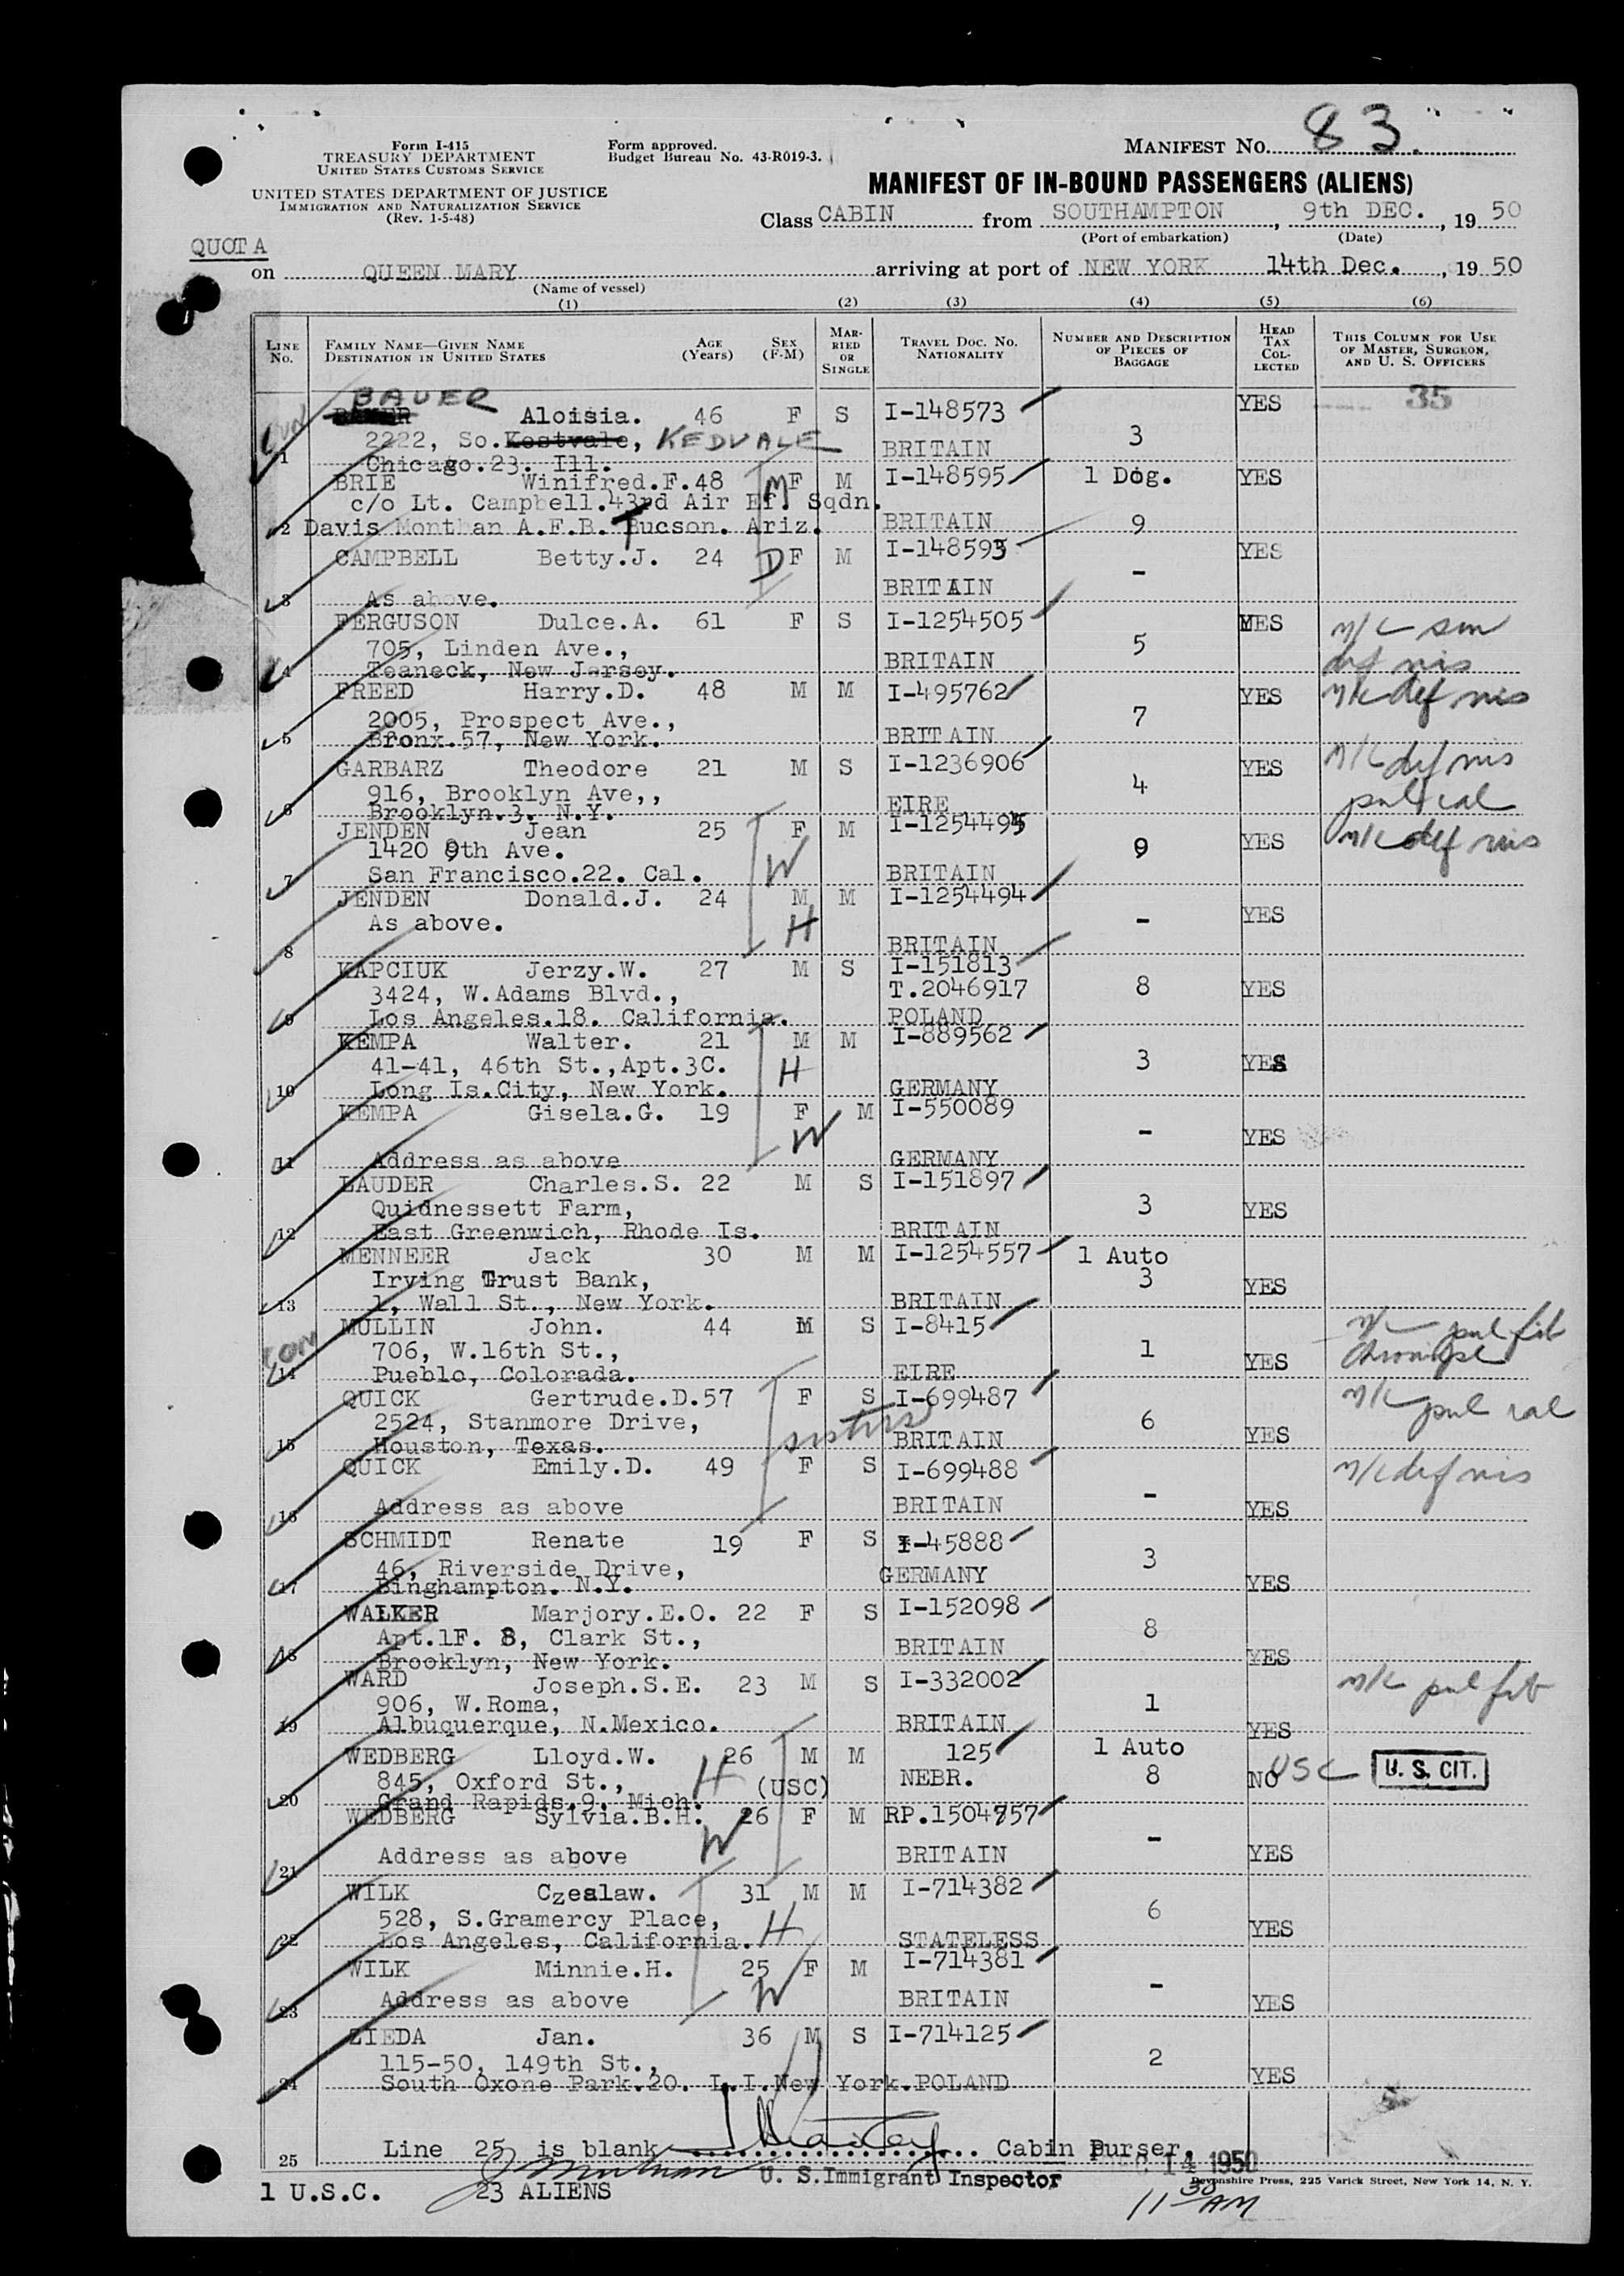 Form I-415
TREASURY DEPARTMENT
UNITED STATES CUSTOMS SERVICE
UNITED STATES DEPARTMENT OF JUSTICE
IMMIGRATION AND NATURALIZATION SERVICE
(Rev. 1-5-48)
Form approved.
Budget Bureau No. 43-R019-3.
MANIFEST NO. 83.
MANIFEST OF IN-BOUND PASSENGERS (ALIENS)
Class CABIN from SOUTHAMPTON, 9th DEC., 19 50
(Port of embarkation) (Date)
QUOTA
on QUEEN MARY arriving at port of NEW YORK 14th Dec., 19 50
(Name of vessel)
(1) (2) (3) (4) (5) (6)
LINE NO. FAMILY NAME—GIVEN NAME DESTINATION IN UNITED STATES AGE (Years) SEX (F-M) MARRIED OR SINGLE TRAVEL DOC. NO. NATIONALITY NUMBER AND DESCRIPTION OF PIECES OF BAGGAGE HEAD TAX COLLECTED THIS COLUMN FOR USE OF MASTER, SURGEON, AND U. S. OFFICERS
BAUER 35
Aloisia. 46 F S I-148573 YES
2222, So. Kostvale, KEDVALE BRITAIN 3
1 Chicago.23. Ill.
BRIE Winifred.F. 48 M F M I-148595 1 Dog. YES
c/o Lt. Campbell.43rd Air Ef. Sqdn.
2 Davis Monthan A.F.B. Tucson. Ariz. BRITAIN 9
CAMPBELL Betty.J. 24 D F M I-148593 YES
BRITAIN -
3 As above.
FERGUSON Dulce.A. 61 F S I-1254505 YES n/c sen
705, Linden Ave., BRITAIN 5 def vis
4 Teaneck, New Jersey.
FREED Harry.D. 48 M M I-495762 YES n/c def vis
2005, Prospect Ave., 7
5 Bronx.57, New York. BRITAIN
GARBARZ Theodore 21 M S I-1236906 YES n/c def vis
916, Brooklyn Ave,, EIRE 4 pul cal
6 Brooklyn.3. N.Y.
JENDEN Jean 25 F M I-1254495 YES n/c def vis
1420 9th Ave. W 9
7 San Francisco.22. Cal. BRITAIN
JENDEN Donald.J. 24 M M I-1254494 YES
As above. H -
8 BRITAIN
KAPCIUK Jerzy.W. 27 M S I-151813
3424, W.Adams Blvd., T.2046917 8 YES
9 Los Angeles.18. California. POLAND
KEMPA Walter. 21 M M I-889562
41-41, 46th St.,Apt.3C. H 3 YES
10 Long Is.City, New York. GERMANY
KEMPA Gisela.G. 19 F M I-550089
W - YES
11 Address as above GERMANY
LAUDER Charles.S. 22 M S I-151897
Quidnessett Farm, 3 YES
12 East Greenwich, Rhode Is. BRITAIN
MENNEER Jack 30 M M I-1254557 1 Auto
Irving Trust Bank, 3 YES
13 1, Wall St., New York. BRITAIN
MULLIN John. 44 M S I-8415 n/c pul fib
706, W.16th St., 1 YES
14 Pueblo, Colorada. EIRE
QUICK Gertrude.D. 57 F S I-699487 n/c pul cal
2524, Stanmore Drive, sisters 6 YES
15 Houston, Texas. BRITAIN
QUICK Emily.D. 49 F S I-699488 n/c def vis
16 Address as above BRITAIN - YES
SCHMIDT Renate 19 F S I-45888
46, Riverside Drive, GERMANY 3
17 Binghampton. N.Y. YES
WALKER Marjory.E.O. 22 F S I-152098
Apt.1F. 8, Clark St., BRITAIN 8
18 Brooklyn, New York. YES
WARD Joseph.S.E. 23 M S I-332002 n/c pul fib
906, W.Roma, 1
19 Albuquerque, N.Mexico. BRITAIN YES
WEDBERG Lloyd.W. 26 M M 125 1 Auto
845, Oxford St., H (USC) NEBR. 8 NO USC U. S. CIT.
20 Grand Rapids.9. Mich.
WEDBERG Sylvia.B.H. 26 F M RP.1504757
W -
21 Address as above BRITAIN YES
WILK Czealaw. 31 M M I-714382
528, S.Gramercy Place, H 6 YES
22 Los Angeles, California. STATELESS
WILK Minnie.H. 25 F M I-714381
23 Address as above W BRITAIN - YES
ZIEDA Jan. 36 M S I-714125
115-50, 149th St., 2 YES
24 South Oxone Park.20. L.I.New York. POLAND
25 Line 25 is blank Cabin Purser.
U. S.Immigrant Inspector 14 1950
Devonshire Press, 225 Varick Street, New York 14, N. Y.
1 U.S.C. 23 ALIENS 11 30 AM